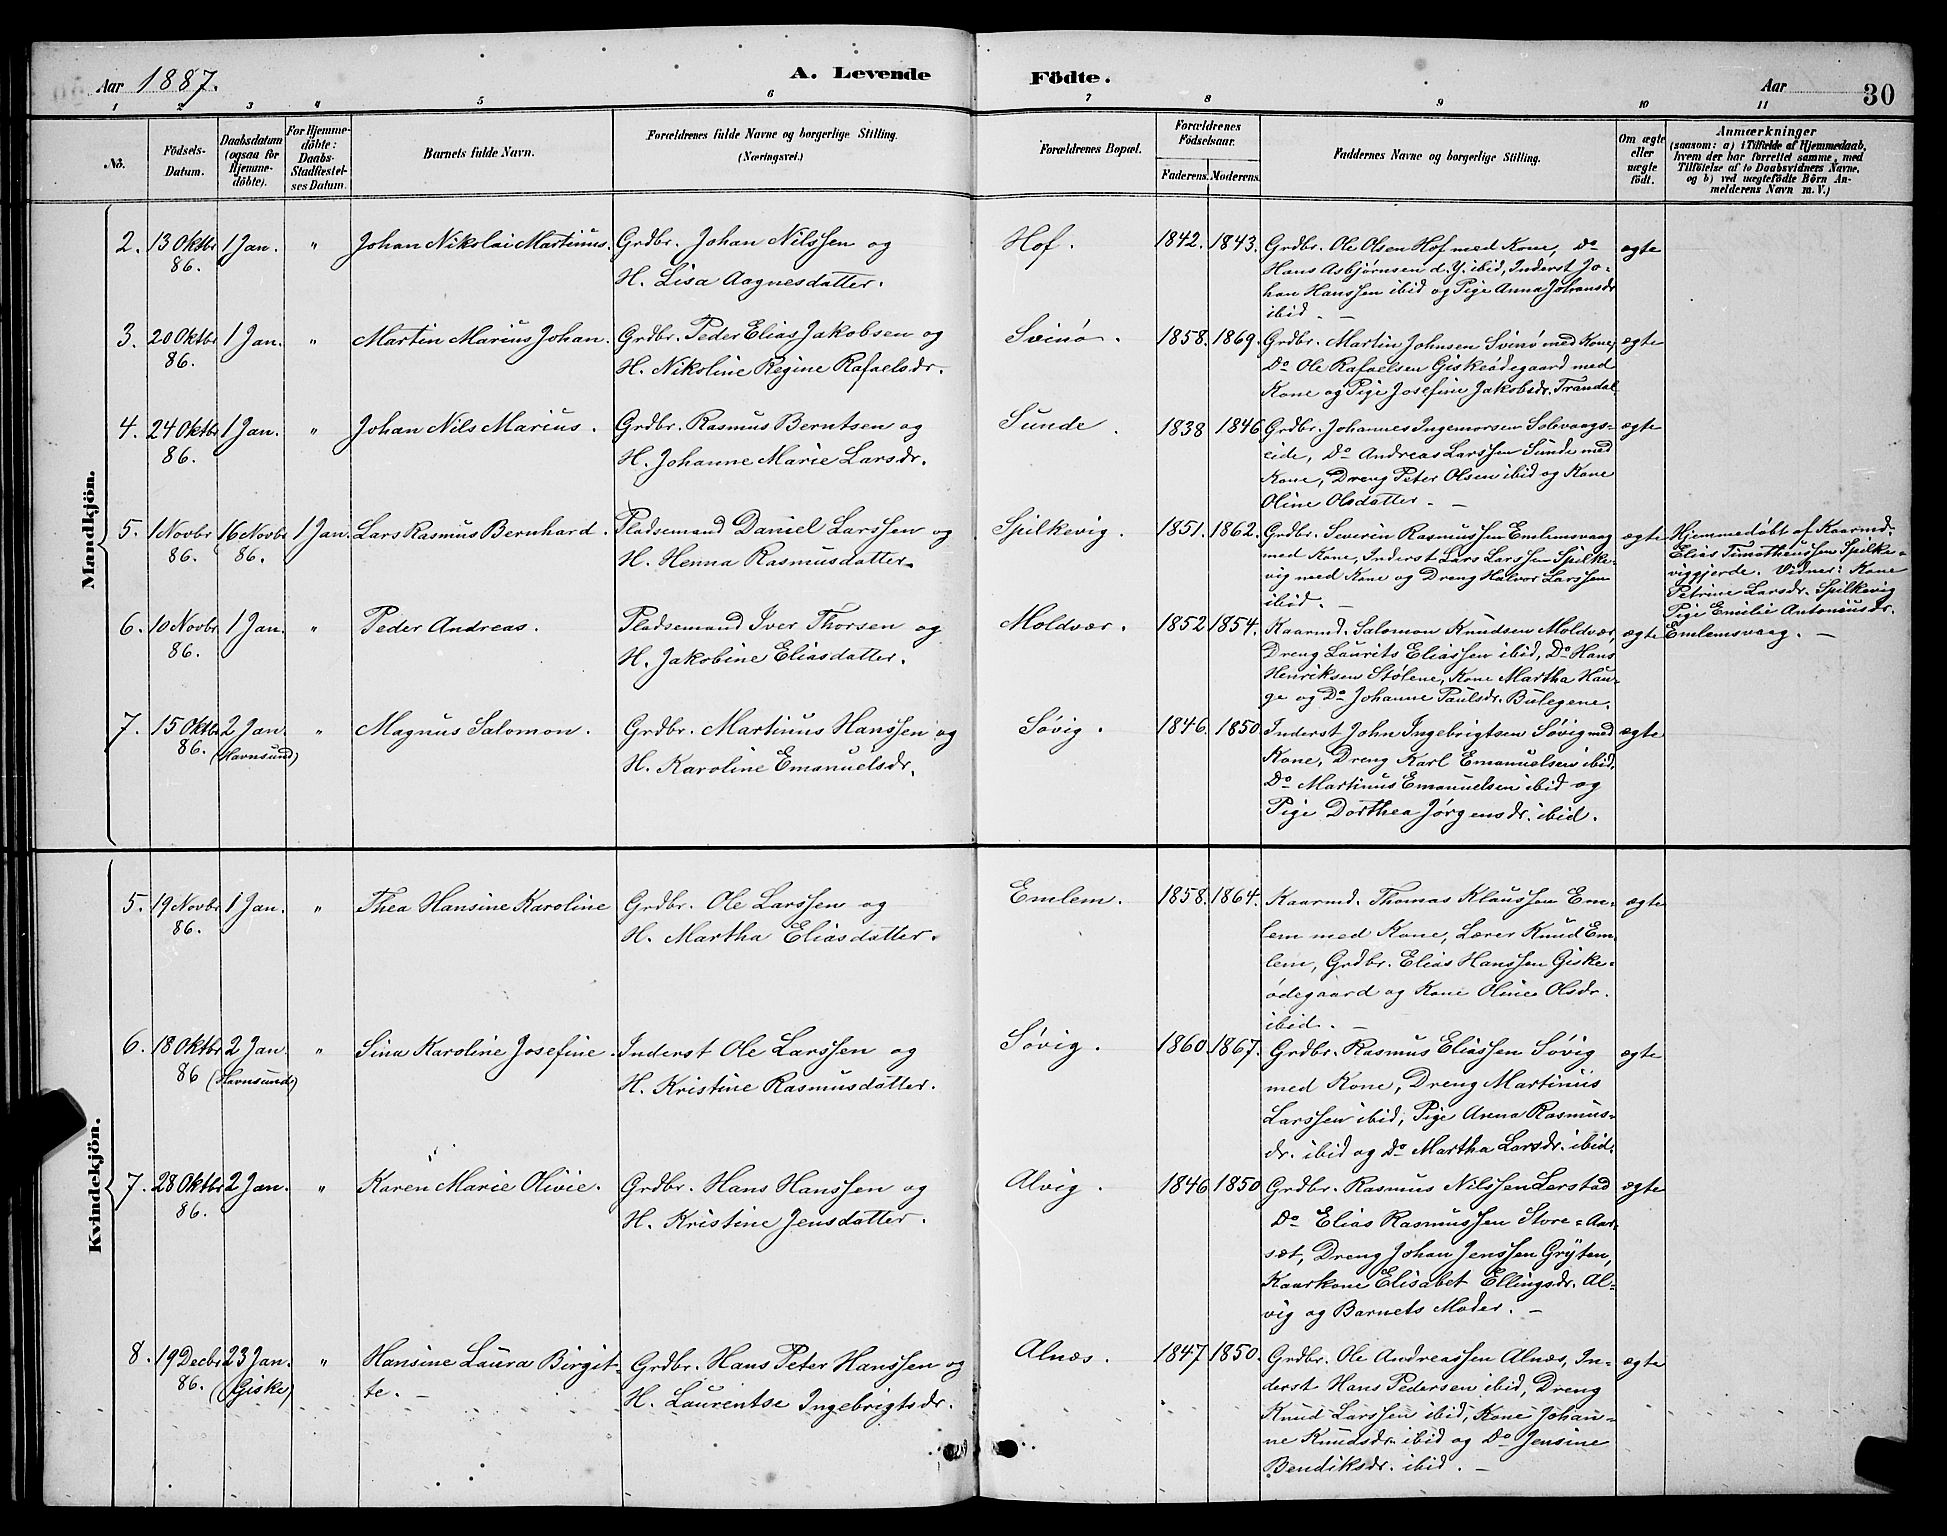 Aar 1887.
A. Levende Födte.
Aar
30
1 2 3 4 5 6 7 8 9 10 11
No.
Födsels-
Datum.
Daabsdatum
(ogsaa for
Hjemme-
döbte).
For Hjemme-
döbte:
Daabs-
Stadfæstel-
ses Datum.
Barnets fulde Navn.
Forældrenes fulde Navne og borgerlige Stilling.
(Næringsvei.)
Forældrenes Bopæl.
Forældrenes
Födselsaar.
Faderens. Moderens.
Faddernes Navne og borgerlige Stilling.
Om ægte
eller
uægte
födt.
Anmærkninger
(saasom: a) i Tilfælde af Hjemmedaab,
hvem der har forrettet samme, med
Tilföielse af to Daabsvidners Navne,
og b) ved uægtefödte Börn An-
melderens Navn m. V.)
Mandkjön.
2. 13 Oktbr 1 Jan. " Johan Nikolai Martinus. Grdbr. Johan Nilssen og Hof. 1842. 1843. Grdbr. Ole Olsen Hof med Kone, Do ægte
86. H. Lisa Aagnesdatter. Hans Asbjørnsen d. Y. ibid, Inderst Jo-
han Hanssen ibid og Pige Anna Johansdr
ibid. —
3. 20 Oktbr 1 Jan. " Martin Marius Johan. Grdbr. Peder Elias Jakobsen og Svinø. 1858. 1869. Grdbr. Martin Johnsen Svinø med Kone, ægte
86. H. Nikoline Regine Rafaelsdr. Do Ole Rafaelsen Giskeødegaard med
Kone og Pige Josefine Jakobsdr. Trandal.
4. 24 Oktbr 1 Jan. " Johan Nils Marius. Grdbr. Rasmus Berntsen og Sunde. 1838 1846 Grdbr. Johannes Ingemorsen Solvaags- ægte
86. H. Johanne Marie Larsdr. eide, Do Andreas Larssen Sunde med
Kone, Dreng Peter Olsen ibid og Kone
Oline Olsdatter. —
5. 1 Novbr 16 Novbr 1 Jan. Lars Rasmus Bernhard. Pladsemand Daniel Larssen og Spilkevig. 1851. 1862. Grdbr. Severin Rasmussen Emlemsvaag ægte Hjemmedøbt af Kaarmd.
86. 86. H. Henna Rasmusdatter. med Kone, Inderst Lars Larssen Spilke- Elias Timotheussen Spilke-
vig med Kone og Dreng Halvor Larssen viggjerde. Vidner: Kone
ibid. — Petrine Larsdr. Spilkevig
Pige Emilie Antoniusdr.
Emlemsvaag. —
6. 10 Novbr 1 Jan. " Peder Andreas. Pladsemand Iver Thorsen og Moldvær. 1852 1854. Kaarmd. Salomon Knudsen Moldvær, ægte
86. H. Jakobine Eliasdatter. Dreng Laurits Eliassen ibid, Do Hans
Henriksen Stølene, Kone Martha Hau-
ge og Do Johanne Paulsdr. Bulegene.
7. 15 Oktbr 2 Jan. " Magnus Salomon. Grdbr. Martinus Hanssen og Søvig. 1846. 1850 Inderst John Ingebrigtsen Søvig med ægte
86. (Havnsund) H. Karoline Emanuelsdr. Kone, Dreng Karl Emanuelsen ibid,
Do Martinus Emanuelsen ibid og
Pige Dorthea Jørgensdr. ibid.
Kvindekjön.
5. 19 Novbr 1 Jan. " Thea Hansine Karoline Grdbr. Ole Larssen og Emlem. 1858. 1864. Kaarmd. Thomas Klaussen Em- ægte
86. H. Martha Eliasdatter. lem med Kone, Lærer Knud Em-
lem, Grdbr. Elias Hanssen Giske-
ødegaard og Kone Oline Olsdr.
ibid. —
6. 18 Oktbr 2 Jan. " Sina Karoline Josefine. Inderst Ole Larssen og Søvig. 1860 1867. Grdbr. Rasmus Eliassen Søvig ægte
86 (Havnsund) H. Kristine Rasmusdatter. med Kone, Dreng Martinius
Larssen ibid, Pige Anna Rasmus-
dr. ibid og Do Martha Larsdr. ibid.
7. 28 Oktbr 2 Jan. " Karen Marie Olivie. Grdbr. Hans Hanssen og Alvig. 1846 1850 Grdbr. Rasmus Nilssen Lerstad ægte
86. H. Kristine Jensdatter. Do Elias Rasmussen Store-Aar-
sæt, Dreng Johan Jenssen Gryten,
Kaarkone Elisabet Ellingsdr. Al-
vig og Barnets Moder. —
8. 19 Decbr 23 Jan. " Hansine Laura Birgit- Grdbr. Hans Peter Hanssen og Alnæs. 1847 1850. Grdbr. Ole Andreassen Alnæs, In- ægte
86. (Giske) te. — H. Laurentse Ingebrigtsdr. derst Hans Pedersen ibid, Dreng
Knud Larssen ibid, Kone Johan-
ne Knudsdr. ibid og Do Jensine
Bendiksdr. ibid. —